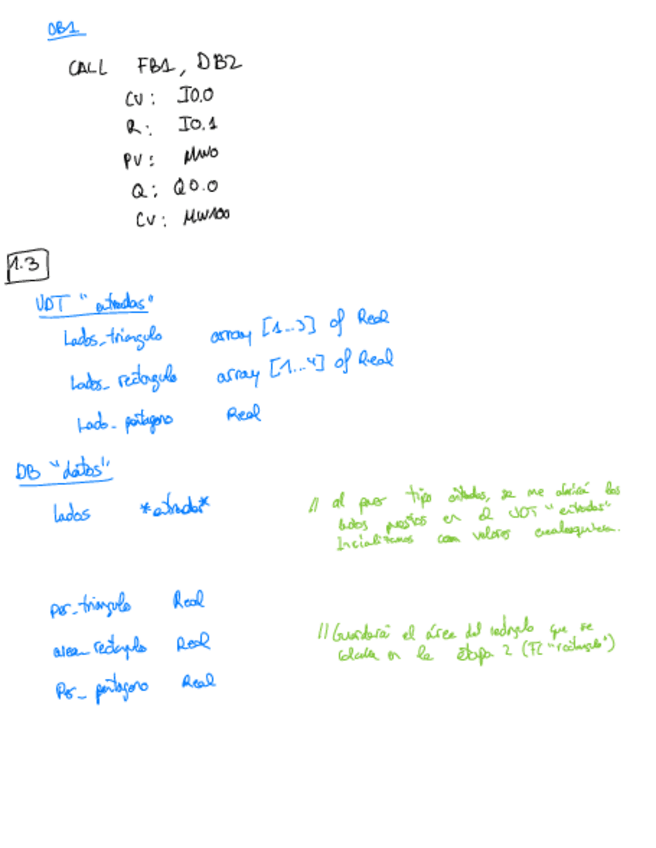 OB1
CALL FB1, DB2
CU: I0.0
R: I0.1
PV: MW0
Q: Q0.0
CV: MW100
1.3
UDT "entradas"
Lados_triangulo array [1...3] of Real
Lados_rectangulo array [1...4] of Real
Lado_pentagono Real
DB "datos"
lados *entradas*
// al poner tipo entradas, se me abrirá los
lados puestos en el UDT "entradas"
Inicializamos con valores cualesquiera.
per_triangulo Real
area_rectangulo Real
Per_pentagono Real
// Guardará el área del rectángulo que se
calcula en la etapa 2 (FC "rectangulo")